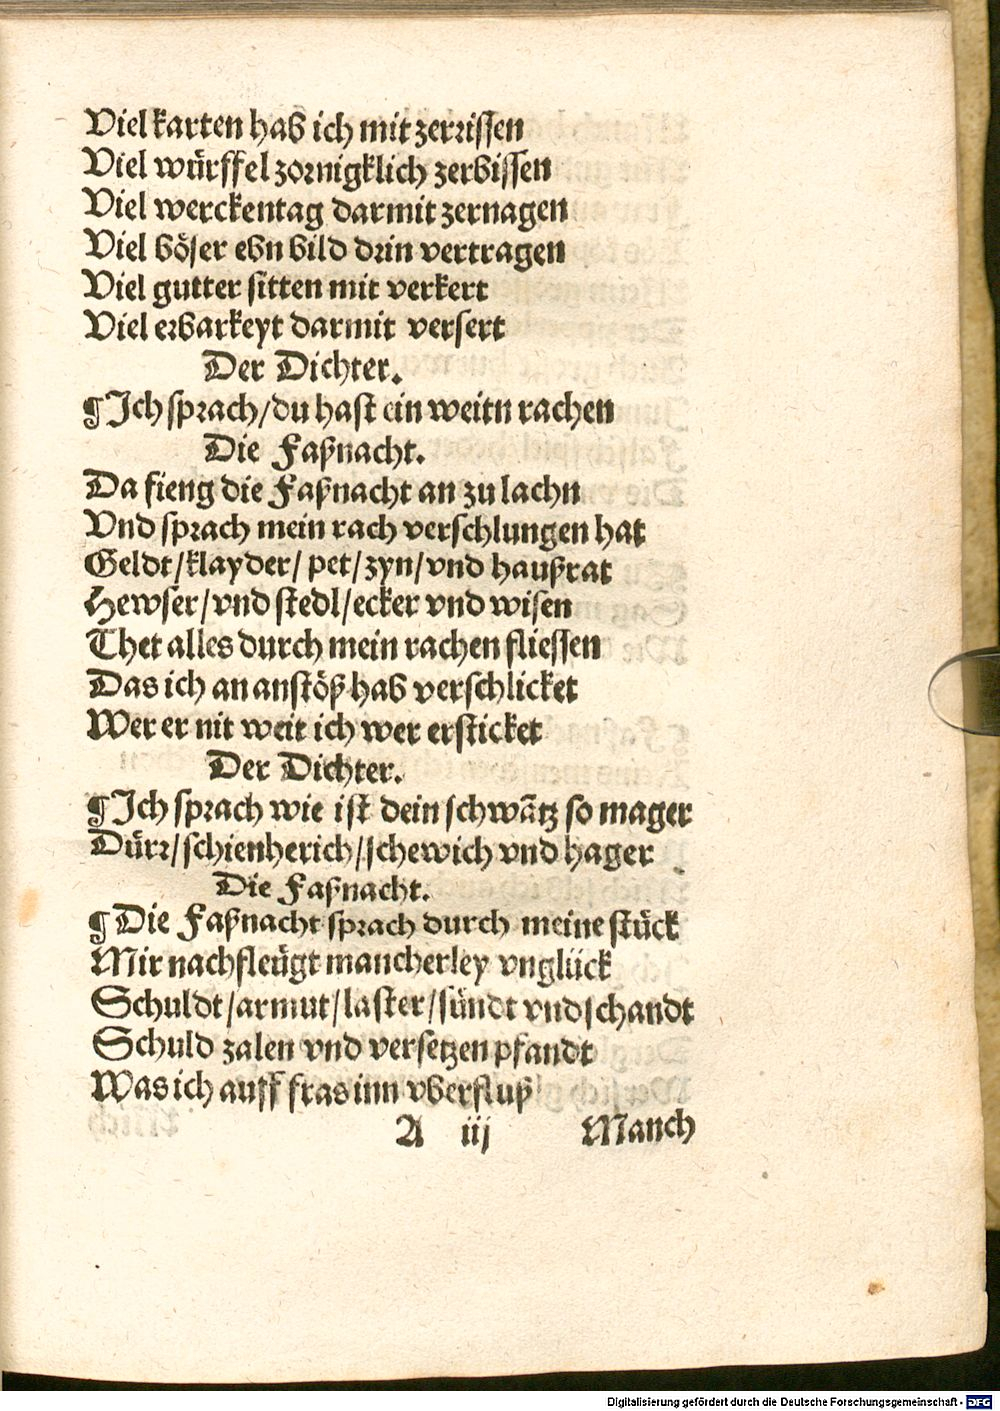 Viel karten hab ich mit zerrissen
Viel würffel zornigklich zerbissen
Viel werckentag darmit zernagen
Viel böser ebn bild drin vertragen
Viel gutter sitten mit verkert
Viel erbarkeyt darmit versert
Der Dichter.
¶ Ich sprach/du hast ein weitn rachen
Die Faßnacht.
Da fieng die Faßnacht an zu lachn
Vnd sprach mein rach verschlungen hat
Geldt/klayder/ pet/zyn/vnd haußrat
Hewser/vnd stedl/ecker vnd wisen
Thet alles durch mein rachen fliessen
Das ich an anstöß hab verschlicket
Wer er nit weit ich wer ersticket
Der Dichter.
¶ Ich sprach wie ist dein schwãtz so mager
Dürr/schienherich/schewich vnd hager
Die Faßnacht.
¶ Die Faßnacht sprach durch meine stück
Mir nachfleügt mancherley vnglück
Schuldt/armut/laster/sündt vnd schandt
Schuld zalen vnd versetzen pfandt
Was ich auff fras inn vberfluß
A iij Manch
Digitalisierung gefördert durch die Deutsche Forschungsgemeinschaft - DFG